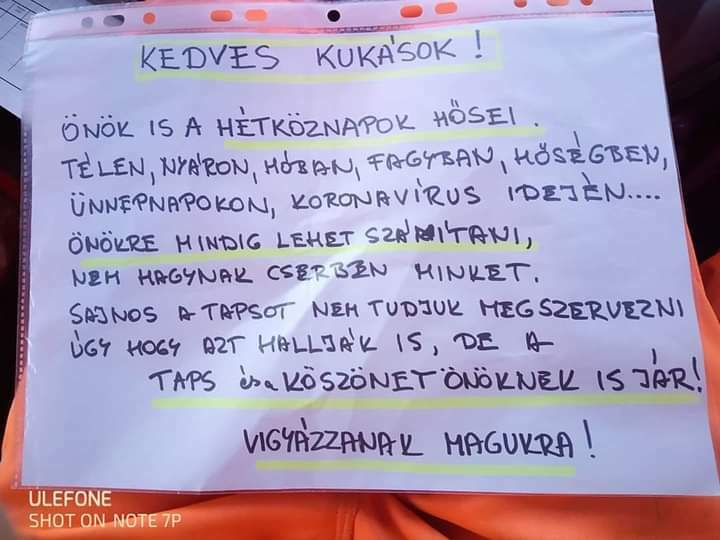 KEDVES KUKÁSOK!
ÖNÖK IS A HÉTKÖZNAPOK HŐSEI.
TÉLEN, NYÁRON, HÓBAN, FAGYBAN, HŐSÉGBEN,
ÜNNEPNAPOKON, KORONAVÍRUS IDEJÉN....
ÖNÖKRE MINDIG LEHET SZÁMÍTANI,
NEM HAGYNAK CSERBEN MINKET.
SAJNOS A TAPSOT NEM TUDJUK MEGSZERVEZNI
ÚGY HOGY AZT HALLJÁK IS, DE A
TAPS és a KÖSZÖNET ÖNÖKNEK IS JÁR!
VIGYÁZZANAK MAGUKRA!
ULEFONE
SHOT ON NOTE 7P